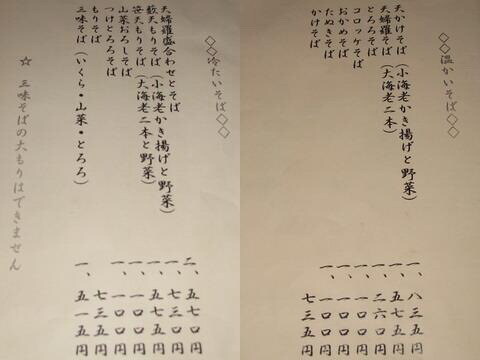 ◇◇温かいそば◇◇
天かけそば(小海老かき揚げと野菜) 一、八三五円
天婦羅そば(大海老二本) 一、五七五円
とろろそば 一、二六〇円
コロッケそば 一、一〇〇円
おかめそば 一、一〇〇円
たぬきそば 一、一〇〇円
かけそば 七三五円
◇◇冷たいそば◇◇
天婦羅盛合わせとそば 二、五七〇円
藪天もりそば(小海老かき揚げと野菜) 一、七三〇円
笹天もりそば(大海老二本と野菜) 一、五七五円
山菜おろしそば 一、一〇〇円
つけとろろそば 一、一〇〇円
もりそば 七三五円
三味そば(いくら・山菜・とろろ) 一、五一五円
☆ 三味そばの大もりはできません